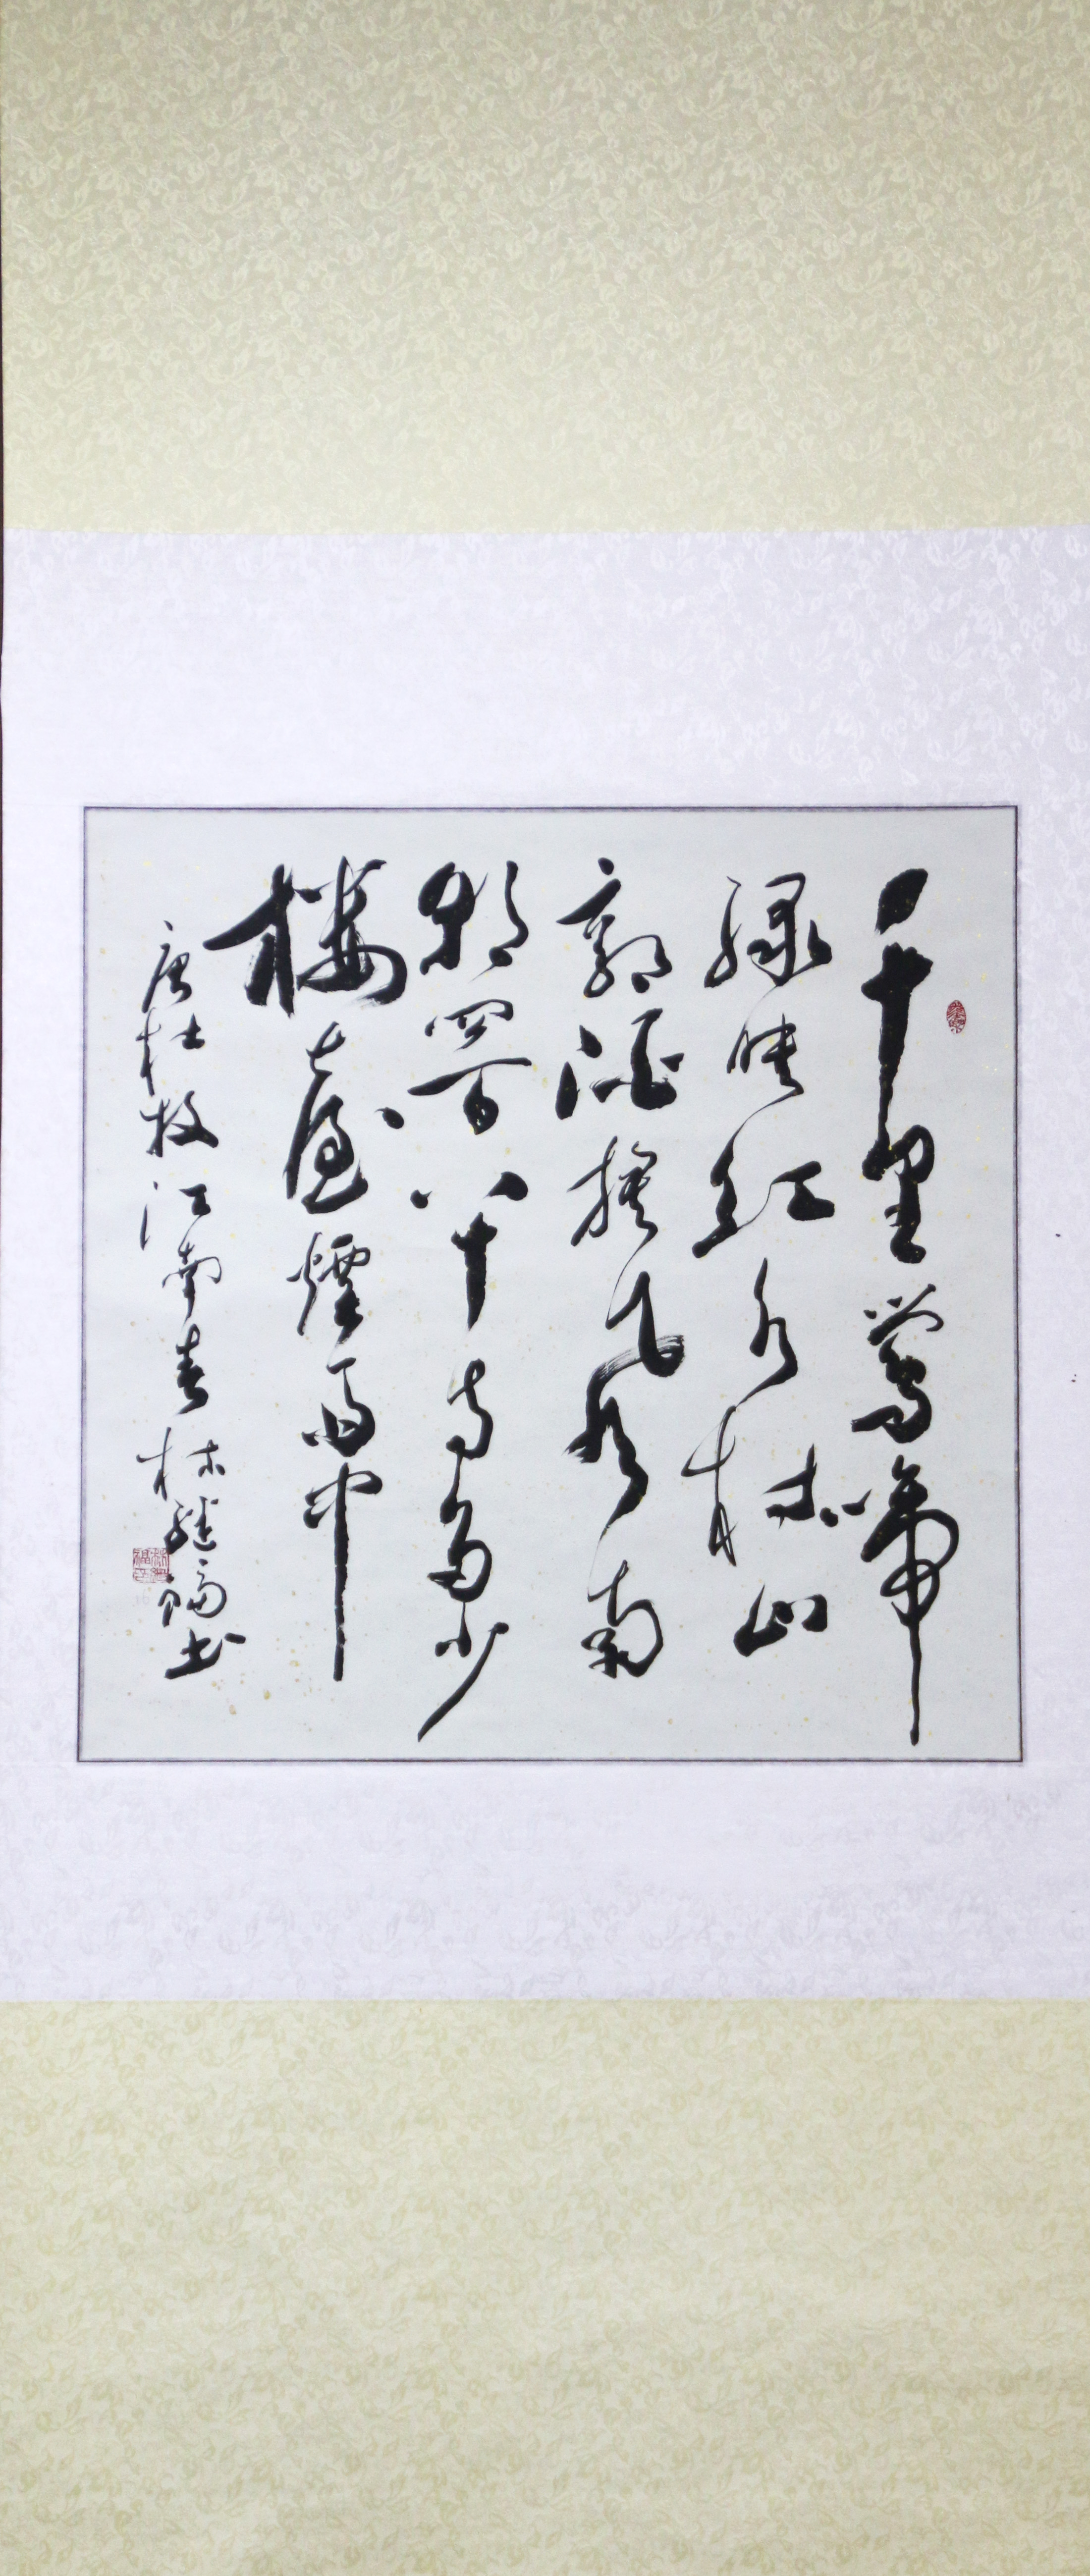 千里鶯啼
綠映紅水村山
郭酒旗風南
朝四百八十寺多少
樓臺煙雨中
唐杜牧江南春 林繼福書